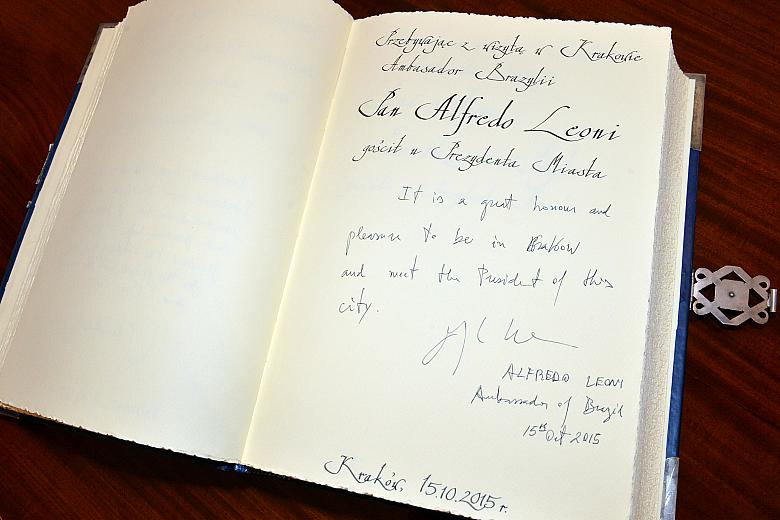 Przebywając z wizytą w Krakowie
Ambasador Brazylii
Pan Alfredo Leoni
gościł u Prezydenta Miasta
It is a great honour and
pleasure to be in Krakow
and meet the President of this
city.
ALFREDO LEONI
Ambassador of Brazil
15th Oct 2015
Kraków, 15.10.2015 r.